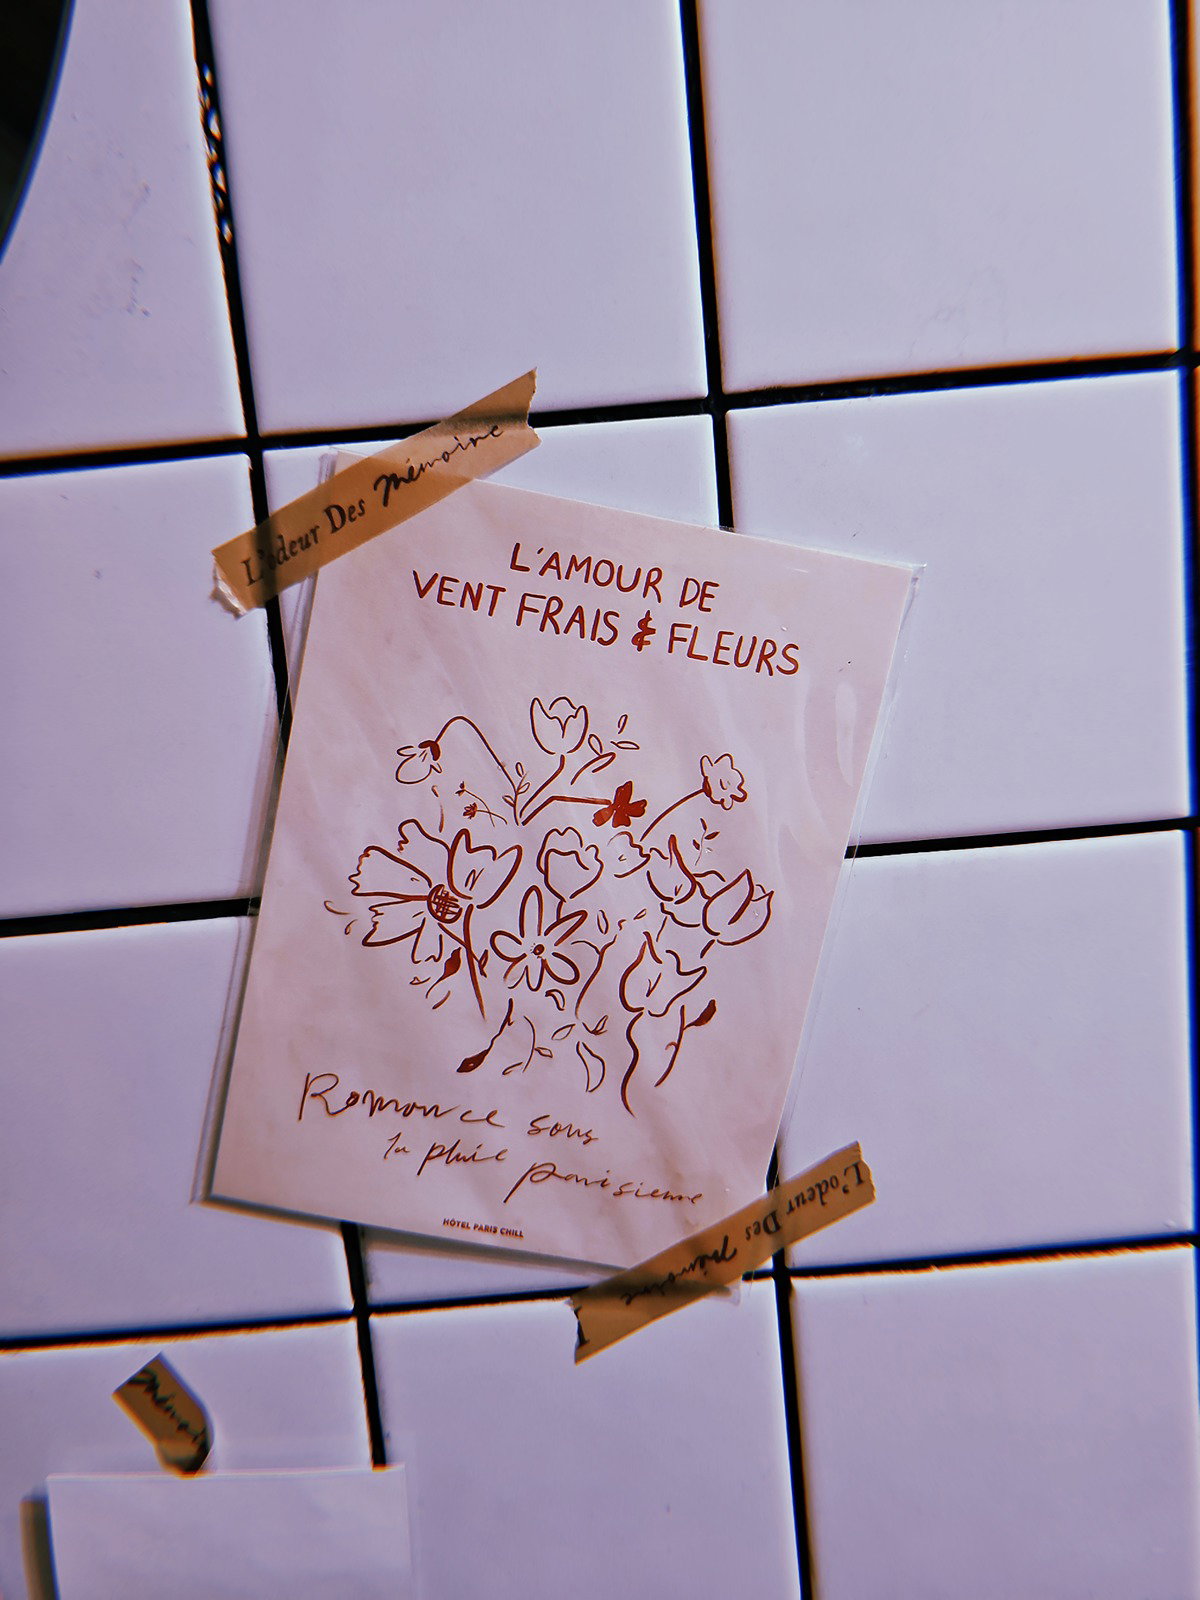 L'odeur Des Mémoire
L'AMOUR DE
VENT FRAIS & FLEURS
Romance sous
la pluie parisienne
HÔTEL PARIS CHILL
L'odeur Des Mémoire